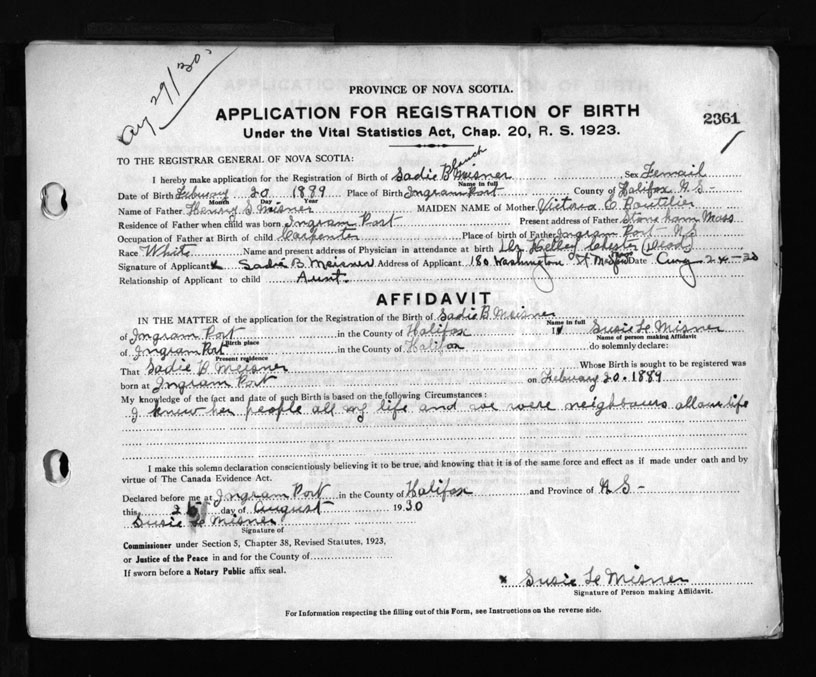 Aug 29/30
PROVINCE OF NOVA SCOTIA.
APPLICATION FOR REGISTRATION OF BIRTH
2361
Under the Vital Statistics Act, Chap. 20, R. S. 1923.
TO THE REGISTRAR GENERAL OF NOVA SCOTIA:
I hereby make application for the Registration of Birth of Sadie B Meisner Sex Femail
Name in full
Date of Birth February 20 1889 Place of Birth Ingram Port County of Halifax N S -
Month Day Year
Name of Father Henry S. Misner MAIDEN NAME of Mother Victoria C Boutilier
Residence of Father when child was born Ingram Port Present address of Father Stoneham Mass
Occupation of Father at Birth of child Carpenter Place of birth of Father Ingram Port - N.S
Race White Name and present address of Physician in attendance at birth Dr Chester (Dead)
Signature of Applicant x Sadie B. Meisner Address of Applicant 180 Washington St Date Aug 24-30
Relationship of Applicant to child Aunt.
AFFIDAVIT
IN THE MATTER of the application of Registration of the Birth of Sadie B. Meisner
Name in full
of Ingram Port in the County of Halifax I, Susie Le Misner
Birth place Name of person making Affidavit
of Ingram Port in the County of Halifax do solemnly declare:
Present residence
That Sadie B Meisner Whose Birth is sought to be registered was
born at Ingram Port on February 20. 1889
My knowledge of the fact and date of such Birth is based on the following Circumstances:
I knew her people all my life and we were neighbours all our life
I make this solemn declaration conscientiously believing it to be true, and knowing that it is of the same force and effect as if made under oath and by
virtue of The Canada Evidence Act.
Declared before me at Ingram Port in the County of Halifax and Province of N S -
this day of August 1930
Susie Le Misner
Signature of
Commissioner under Section 5, Chapter 38, Revised Statutes, 1923,
or Justice of the Peace in and for the County of
If sworn before a Notary Public affix seal.
x Susie Le Misner
Signature of Person making Affidavit.
For Information respecting the filling out of this Form, see Instructions on the reverse side.